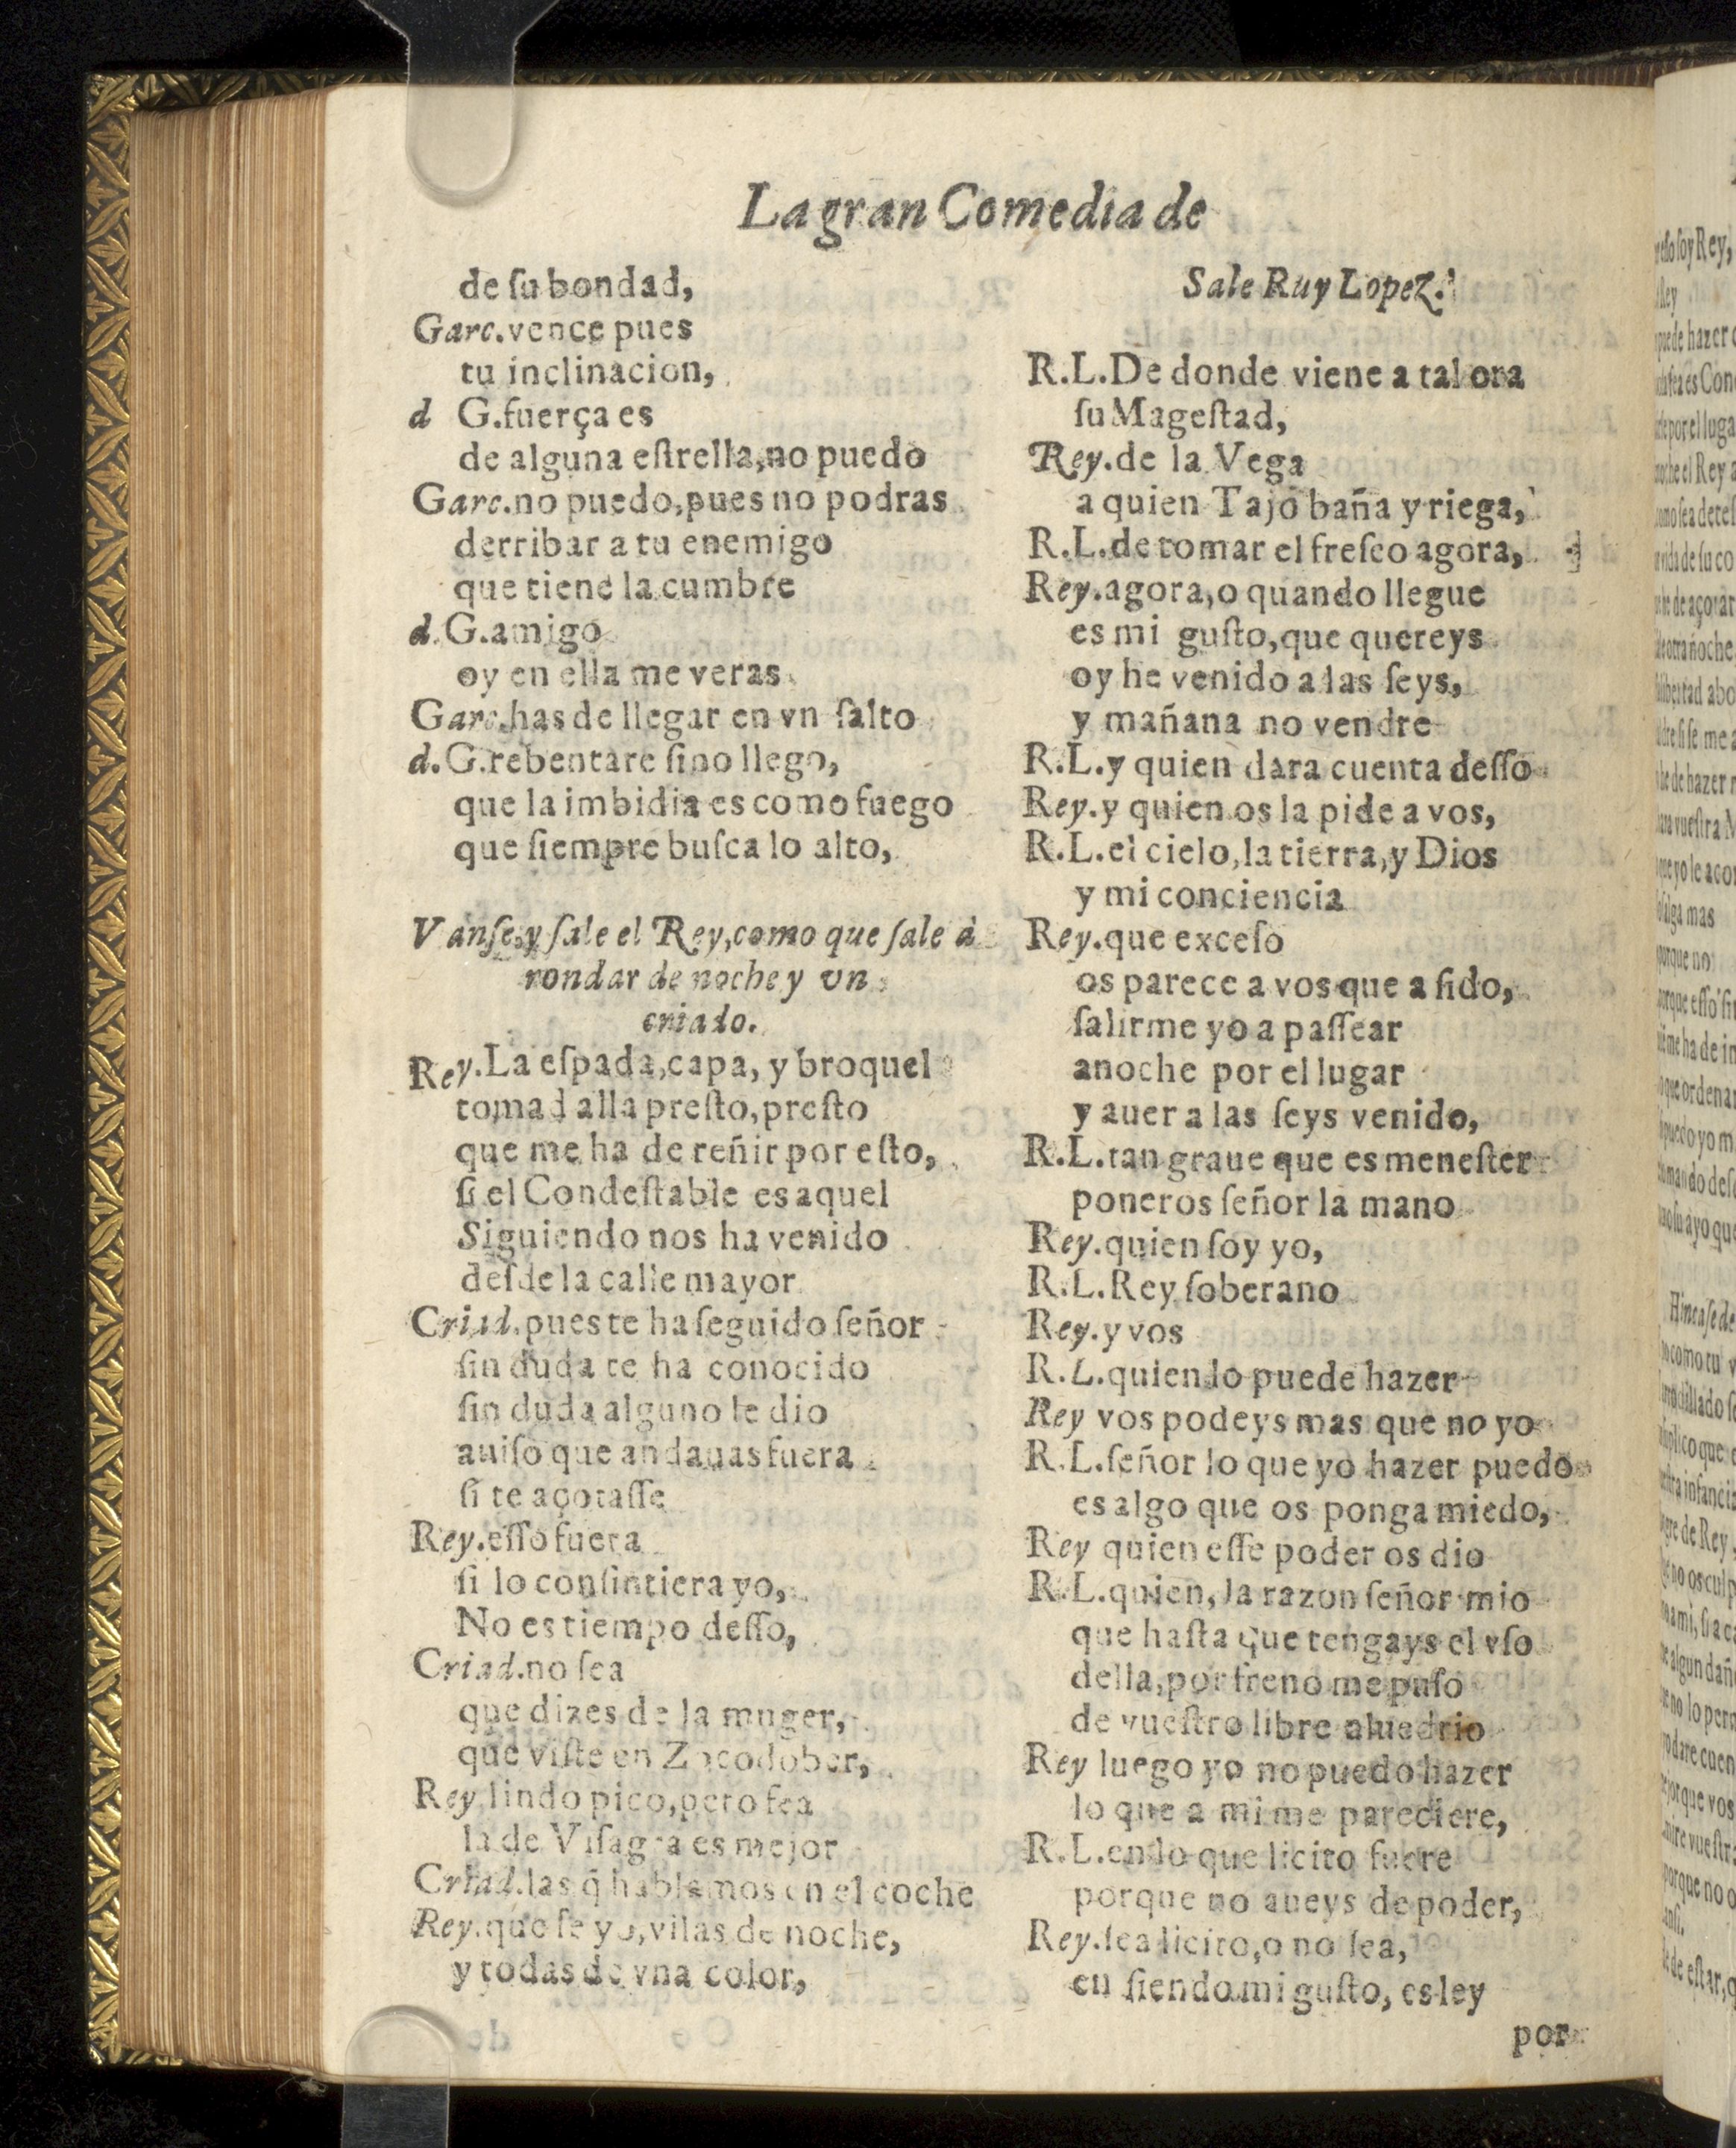 La gran Comedia de
de ſu bondad,
Garc.vence pues
tu inclinacion,
d G.fuerça es
de alguna eſtrella,no puedo
Garc.no puedo,pues no podras
derribar a tu enemigo
que tiene la cumbre
d.G.amigo
oy en ella me veras
Garc.has de llegar en vn ſalto
d.G.rebentare ſino llego,
que la imbidia es como fuego
que ſiempre buſca lo alto,
Vanſe,y ſale el Rey,como que ſale à
rondar de noche y vn
criado.
Rey.La eſpada,capa, y broquel
tomad alla preſto,preſto
que me ha de reñir por eſto,
ſi el Condeſtable es aquel
Siguiendo nos ha venido
deſde la calle mayor
Criad.pues te ha ſeguido ſeñor
ſin duda te ha conocido
ſin duda alguno le dio
auiſo que andauas fuera
ſi te açotaſſe
Rey.eſſo fuera
ſi lo conſintiera yo,
No es tiempo deſſo,
Criad.no ſea
que dizes de la muger,
que viſte en Zocodober,
Rey.lindo pico,pero fea
la de Viſagra es mejor
Criad.las q̃ hablamos en el coche
Rey.que ſe yo,vilas de noche,
y todas de vna color,
Sale Ruy Lopez.
R.L.De donde viene a tal ora
ſu Mageſtad,
Rey.de la Vega
a quien Tajo baña y riega,
R.L.de tomar el freſco agora,
Rey.agora,o quando llegue
es mi guſto,que quereys
oy he venido a las ſeys,
y mañana no vendre
R.L.y quien dara cuenta deſſo
Rey.y quien os la pide a vos,
R.L.el cielo,la tierra,y Dios
y mi conciencia
Rey.que exceſo
os parece a vos que a ſido,
ſalirme yo a paſſear
anoche por el lugar
y auer a las ſeys venido,
R.L.tan graue que es meneſter
poneros ſeñor la mano
Rey.quien ſoy yo,
R.L.Rey ſoberano
Rey.y vos
R.L.quien lo puede hazer
Rey vos podeys mas que no yo
R.L.ſeñor lo que yo hazer puedo
es algo que os ponga miedo,
Rey quien eſſe poder os dio
R.L.quien, la razon ſeñor mio
que haſta que tengays el vſo
della,por freno me puſo
de vueſtro libre aluedrio
Rey luego yo no puedo hazer
lo que a mi me pareciere,
R.L.en lo que licito fuere
porque no aueys de poder,
Rey.ſea licito,o no ſea,
en ſiendo mi guſto, es ley
por